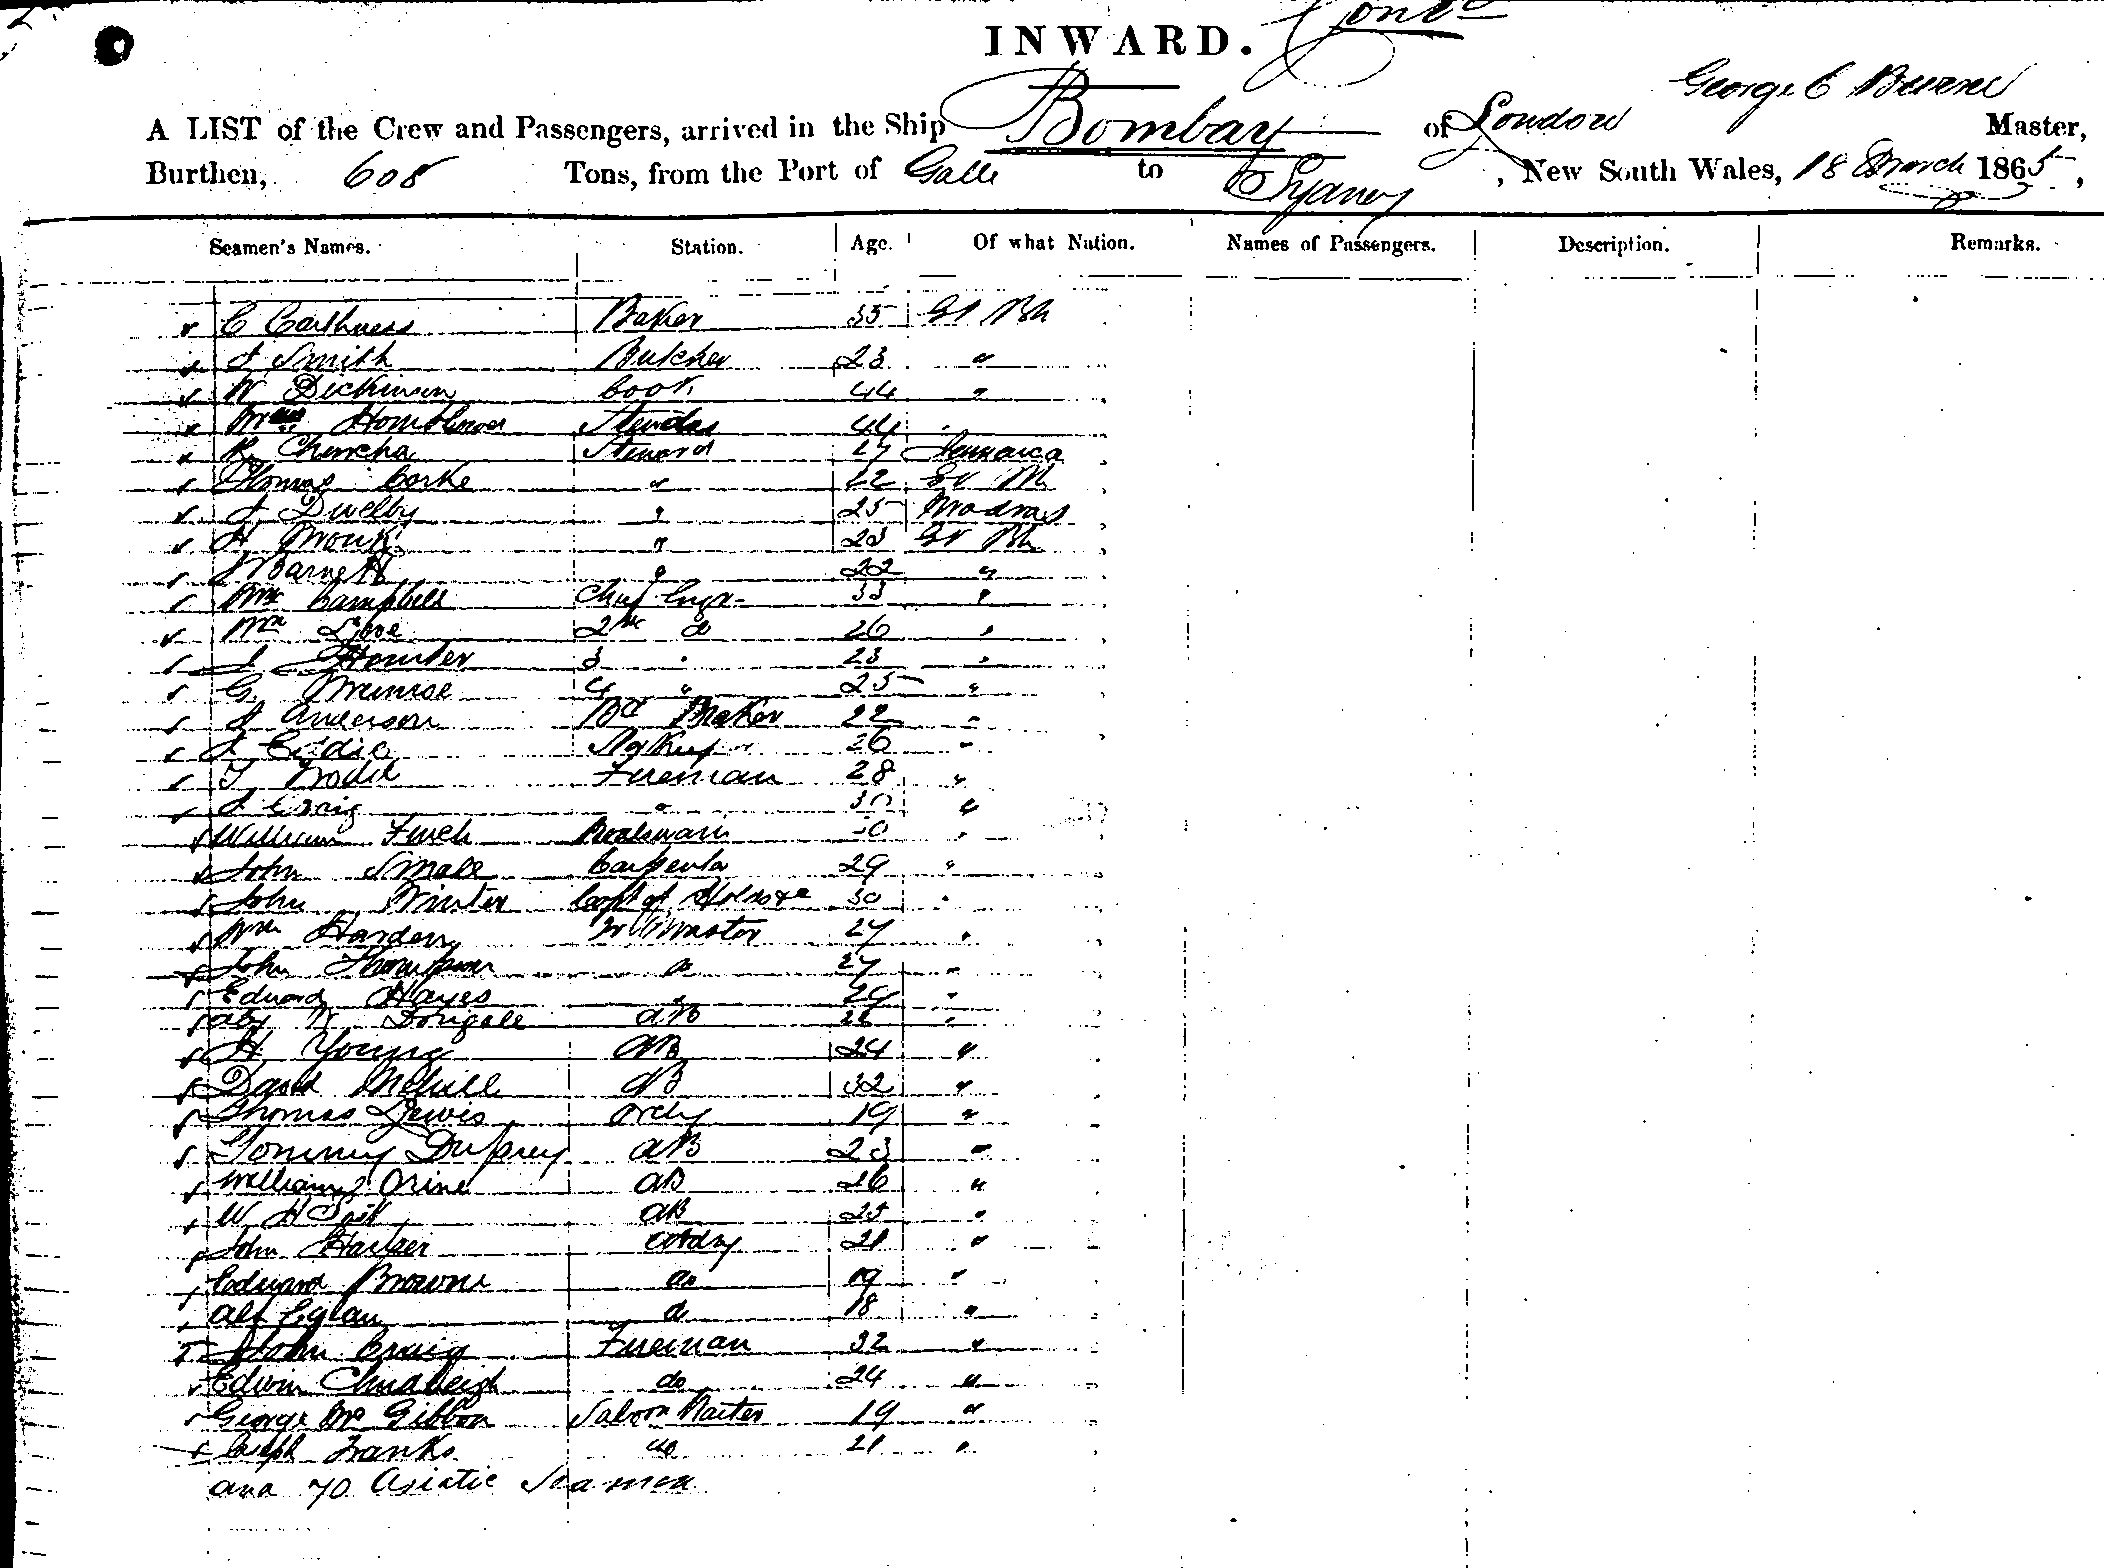 Contd
INWARD.
George C Burne Master,
A LIST of the Crew and Passengers, arrived in the Ship Bombay of London
Burthen, 608 Tons, from the Port of Galle to Sydney, New South Wales, 18 March 1865,
Seamen's Names. Station. Age. Of what Nation. Names of Passengers. Description. Remarks.
C Caithness Baker 35 Gt Bn
J Smith Butcher 23 "
W Dickinson Cook 44 "
Hornblower Stewdss 44 "
R Steward 27 Jamaica
Thomas Corke " 22 Gt Bn
J Dwelby " 25 Madras
H " 23 Gt Bn
J Barnett " 22 "
Wm Campbell Chief Engr 33 "
Wm Love 2nd do 26 "
J Hunter 3 " 23 "
G. Munroe 4 " 25 "
J Anderson Bd Maker 22 "
J Eddie 26 "
T Todd Fireman 28 "
J Craig " 30 "
William Finch Boatswain 30 "
John Small Carpenter 29 "
John Winter Capt of Hold 30 "
Wm Harden Qr Master 27 "
John Thompson do 27 "
Edward Hayes " 29 "
W Dougall AB "
H Young AB 24 "
David McGill AB 32 "
Thomas Lewis Ordy 19 "
Tommy Duprey AB 23 "
William Orine AB 26 "
W H AB 25 "
John Harper Ordy 21 "
Edward Browne do 19 "
Alf Eglan do 18 "
John Craig Fireman 32 "
Edwin Chudleigh do 24 "
George McGibbon Saloon Waiter 19 "
Joseph Franks do 21 "
and 70 Asiatic Seamen